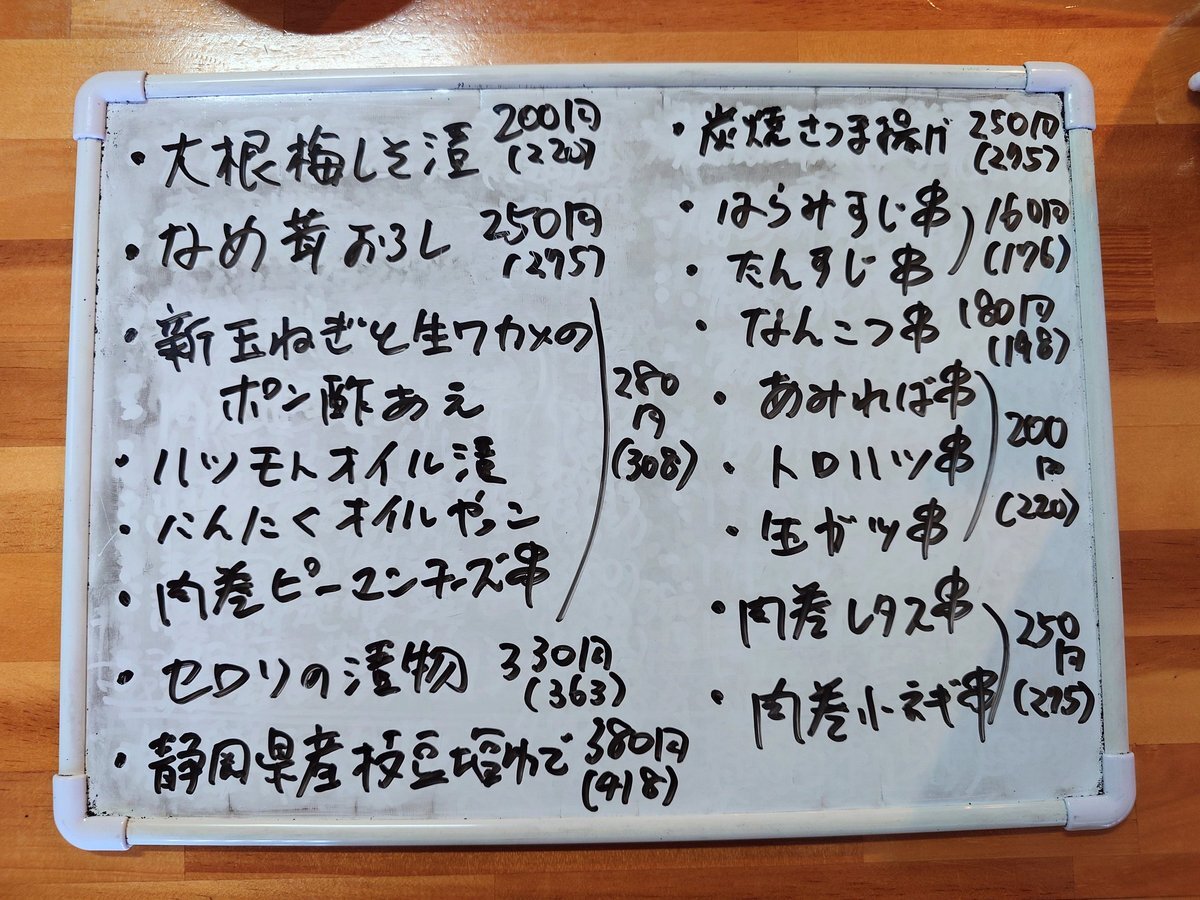 ・大根梅しそ漬 200円
(220)
・なめ茸おろし 250円
(275)
・新玉ねぎと生ワカメの
ポン酢あえ
・ハツモトオイル漬
・にんにくオイルやっこ
・肉巻ピーマンチーズ串
280
円
(308)
・セロリの漬物 330円
(363)
・静岡県産枝豆塩ゆで 380円
(418)
・炭焼さつま揚げ 250円
(275)
・はらみすじ串
・たんすじ串
160円
(176)
・なんこつ串 180円
(198)
・あみればば串
・トロハツ串
・生ガツ串
200
円
(220)
・肉巻レタス串
・肉巻小ネギ串
250
円
(275)